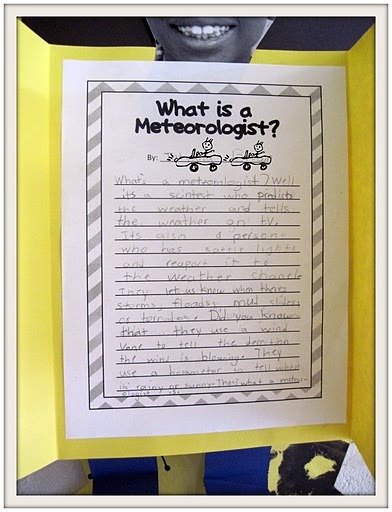 What is a
Meteorologist?
By:
What's a meteorologist? Well
its a scintest who predicts
the weather and tells
the weather on tv.
Its also a person
who has sattie lights
and reaport it to
the weather chancle
They let us know when theres
storms, floods, mud slides,
or tornados. Did you know
that they use a wind
vane to tell the derction
the wind is blowing. They
use a barameter to tell when
its rainy or sunny. Thats what a meteor-
ologist is.